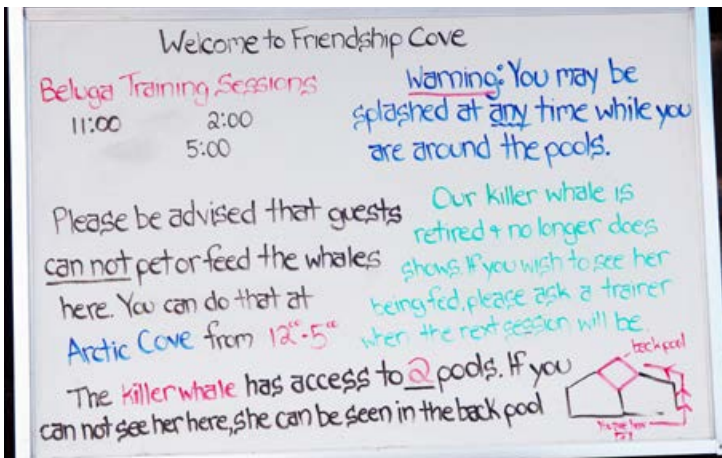 Welcome to Friendship Cove
Beluga Training Sessions
11:00 2:00
5:00
Warning: You may be
splashed at any time while you
are around the pools.
Please be advised that guests
can not pet or feed the whales
here. You can do that at
Arctic Cove from 12⁰⁰-5⁰⁰
Our killer whale is
retired + no longer does
shows. If you wish to see her
being fed, please ask a trainer
when the next session will be.
The killer whale has access to 2 pools. If you
can not see her here, she can be seen in the back pool
back pool